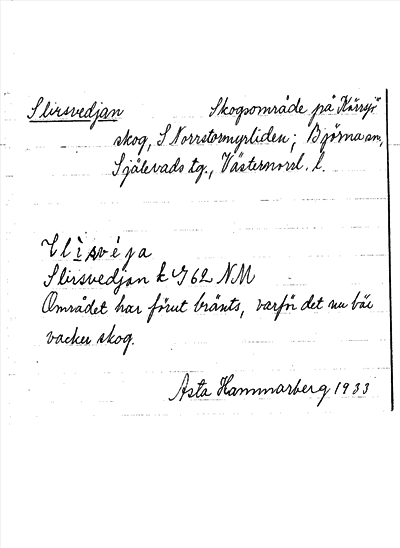 Slirsvedjan Skogsområde på Kärrsjö
skog, S Norrstormyrliden; Björna sn,
Själevads tg., Västernorrl. l.
Slirsvedjan k I 62 NM
Området har förut bränts, varför det nu bär
vacker skog.
Asta Hammarberg 1933